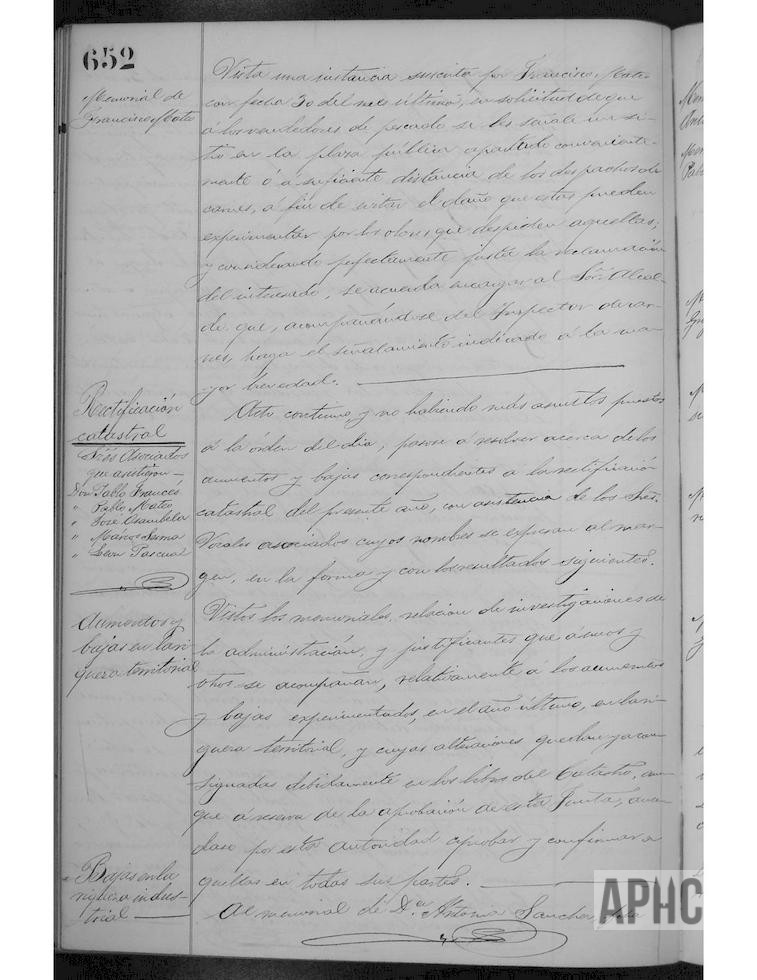 652
Memorial de
Francisco Mateo
Vista una instancia suscrita por Francisco Mateo
con fecha 30 del mes último, en solicitud de que
á los vendedores de pescado se les señale un si-
tio en la plaza pública apartado conveniente-
mente ó á suficiente distancia de los despachos de
carnes, á fin de evitar el daño que estas pueden
experimentar por los olores que despiden aquellas;
y considerando perfectamente justa la reclamación
del interesado, se acuerda encargar al Sor. Alcal-
de que, acompañándose del Inspector de car-
nes, haga el señalamiento indicado á la ma-
yor brevedad.
Rectificación
catastral
Sres Asociados
que asistieron
Don Pablo Francés
" Pablo Mateo
" José
" Marcos Serna
" León Pascual
Acto continuo, y no habiendo más asuntos puestos
á la órden del día, pasose a resolver acerca de los
aumentos y bajas correspondientes a la rectificación
catastral del presente año, con asistencia de los Sres.
Vocales asociados cuyos nombres se expresan al mar-
gen, en la forma y con los resultados siguientes.
Aumentos y
bajas en la ri-
queza territorial
Vistos los memoriales, relacion de investigaciones de
la administración, y justificantes que á unos y
otros se acompañan, relativamente a los aumentos
y bajas experimentados, en el año último, en la ri-
queza territorial, y cuyas alteraciones quedan ya con-
signadas debidamente en los libros del Catastro, aun-
que á reserva de la aprobación de esta Junta, acor-
dase por esta autoridad aprobar y confirmar a
quellas en todas sus partes.
Bajas en la
riqueza indus-
trial
Al memorial de D.ª Antonia Sanchez,
APHC